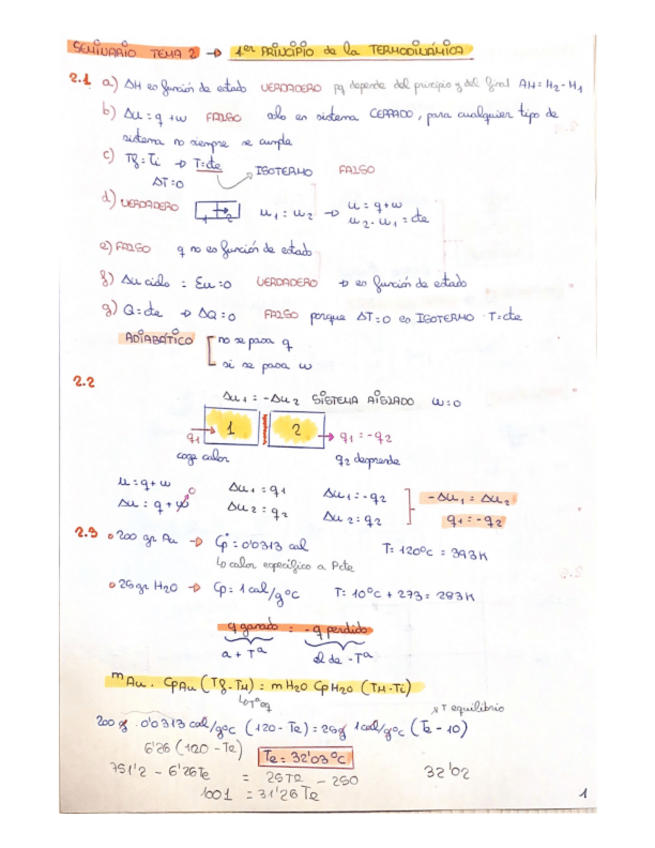 SEMINARIO TEMA 2 → 1er PRINCIPIO de la TERMODINÁMICA
2.1 a) ΔH es función de estado VERDADERO pq depende del principio y del final ΔH = H2 - H1
b) Δu = q + w FALSO solo en sistema CERRADO, para cualquier tipo de
sistema no siempre se cumple
c) Tf = Ti → T = cte → ISOTERMO FALSO
ΔT = 0
d) VERDADERO 1 → 2 u1 = u2 → u = q + w
u2 - u1 = cte
e) FALSO q no es función de estado
f) Δu ciclo = Σu = 0 VERDADERO → es función de estado
g) Q = cte → ΔQ = 0 FALSO porque ΔT = 0 es ISOTERMO T = cte
ADIABÁTICO no se pasa q
si se pasa w
2.2
Δu1 = -Δu2 SISTEMA AISLADO w = 0
q1 → 1 2 → q1 = -q2
coge calor q2 desprende
u = q + w
Δu = q + w 0
Δu1 = q1
Δu2 = q2
Δu1 = -q2
Δu2 = q2
-Δu1 = Δu2
q1 = -q2
2.3 • 200 gr Au → Cp = 0'0313 cal T = 120ºC = 393K
↳ calor específico a P cte
• 25 gr H2O → Cp = 1 cal/gºC T = 10ºC + 273 = 283K
q ganado = - q perdido
a + Tª el de - Tª
mAu · CpAu (Tf - TM) = mH2O CpH2O (TM - Ti)
↳ Tª eq
T equilibrio
200 g · 0'0313 cal/gºC (120 - Te) = 25g 1cal/gºC (Te - 10)
6'26 (120 - Te) Te = 32'03ºC
751'2 - 6'26Te = 25Te - 250 32'02
1001 = 31'26 Te
1